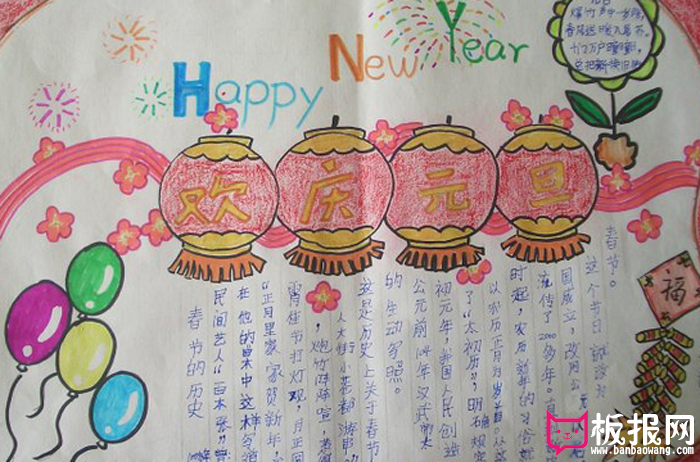 Happy New Year
爆竹声中一岁除,
春风送暖入屠苏。
千门万户曈曈日,
总把新桃换旧符
欢庆元旦
福
春节的历史
民间艺人“百本张”
在他的曲本中这样写道
“正月里家家贺新年,
宵佳节打灯观,月正圆
这是历史上关于春节
的生动写照。
公元前104年汉武帝太
初元年,我国人民创造
了“太初历”,明确规定
以农历正月为岁首。从这
时起,农历新年的习俗就
流传了2000多年。
国成立,改用公元
这个节日
春节。
板报网
www.banbaowang.com